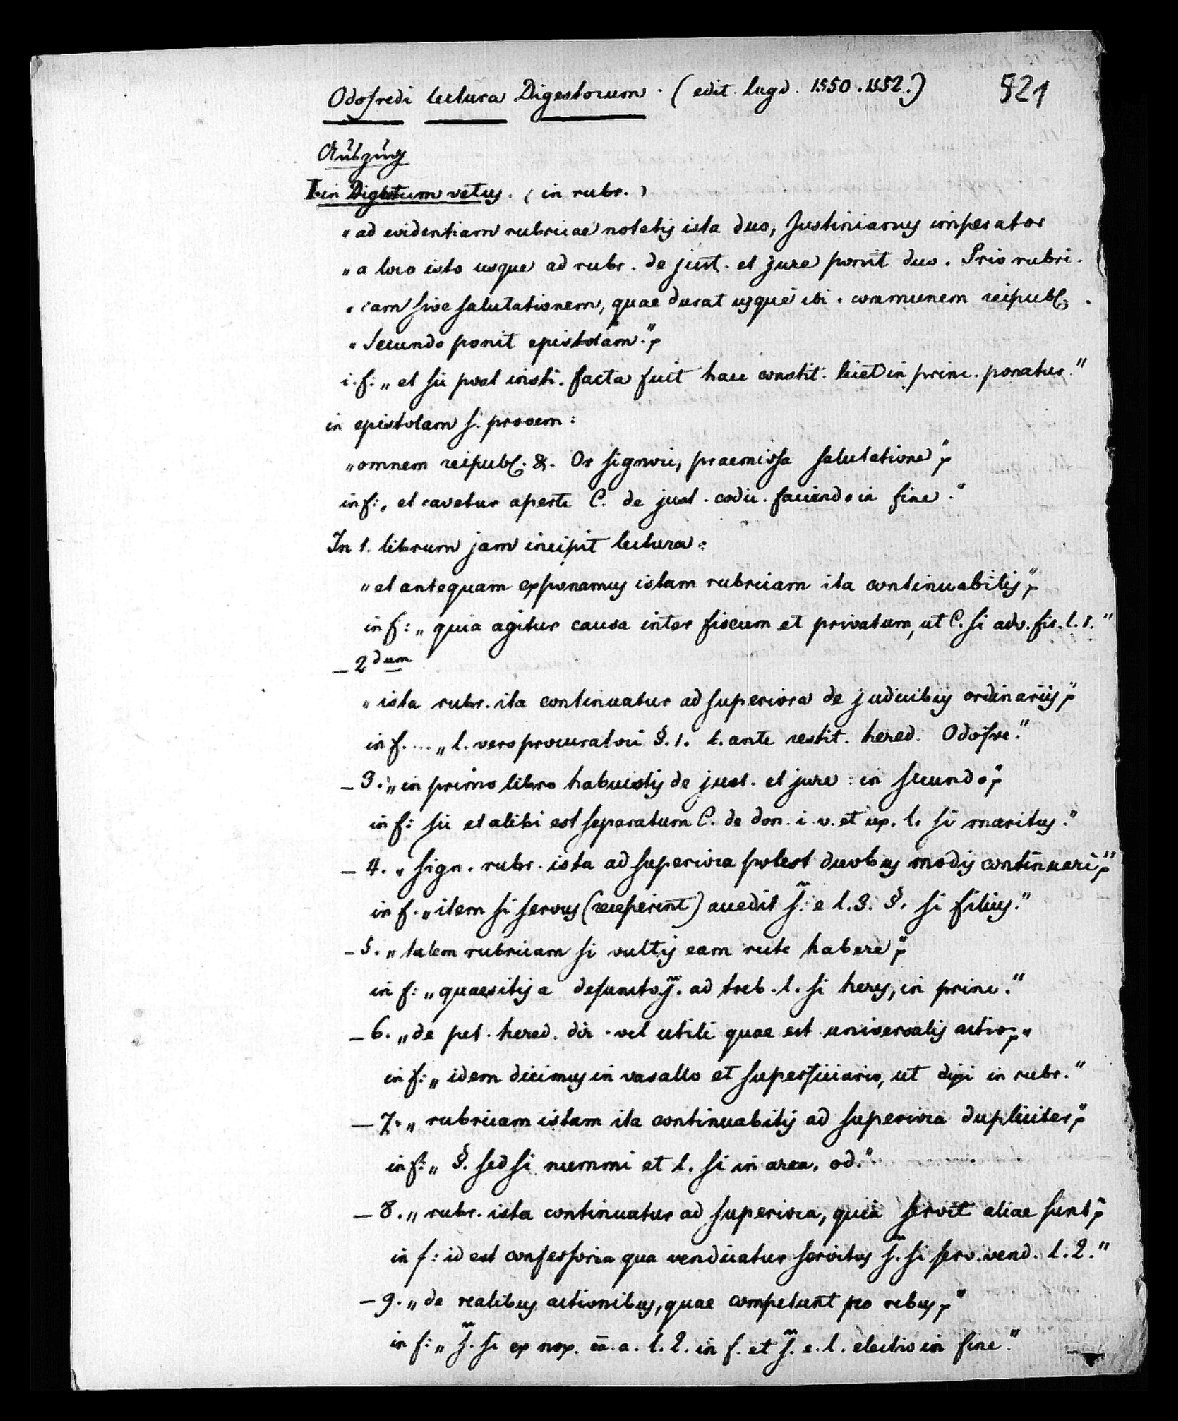 Odofredi lectura Digestorum. (edit. lugd. 1550. 1552.) 521
Auszug
I. in Digestum vetus. (in rubr.)
„ad evidentiam rubricae notetis ista duo, Justinianus imperator
„a loco isto usque ad rubr. de just. et jure ponit duo. Prio rubri-
„cam sive salutationem, quae durat usque ibi. communem reipubl.
„Secundo ponit epistolam.“,
i. f: „et sic post insti. facta fuit haec constit. licet in princ. ponatur.“
in epistolam s. prooem:
„omnem reipubl. &. Or signori, praemissa salutatione“,
in f: „et cavetur aperte C. de just. codic. faciendo in fine.“
In 1. librum jam incipit lectura:
„et antequam exponamus istam rubricam ita continuabitis“,
in f: „quia agitur causa inter fiscum et privatum, ut C. si adv. fis. l. 1.“
– 2dum
„ista rubr. ita continuatur ad superiora de judicibus ordinariis“,
in f. ... „l. vero procuratori §. 1. l. ante restit. hered. Odofre.“
– 3. „in primo libro habuistis de just. et jure: in secundo“,
in f: sic et alibi est separatum C. de don. i. v. et ux. l. si maritus.“
– 4. „sign. rubr. ista ad superiora potest duobus modis continueri“,
in f. „item si servus (receperint) accedit ff. e l. 3. §. si filius.“
– 5. „talem rubricam si vultis eam recte habere“,
in f: „quaesitis a defuncto ff. ad treb. l. si heres, in princ.“
– 6. „de pet. hered. dir. vel utili quae est universalis actio“,
in f: „idem dicimus in vasallo et superficiario, ut dixi in rubr.“
– 7. „rubricam istam ita continuabitis ad superiora dupliciter“,
in f: „§. sed si nummi et l. si in area. od.“
– 8. „rubr. ista continuatur ad superiora, quia servit aliae sunt“,
in f: id est confessoria qua vendicatur servitus ff. si serv. vend. l. 2.“
– 9. „de realibus actionibus, quae competunt pro rebus“,
in f: „ff. si ex nox. ca. a. l. 2. in f. et ff. e. l. electio in fine.“